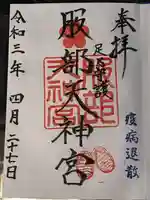 奉拝
疫病退散
足の守護
服部天神宮
令和三年 四月 二十七日